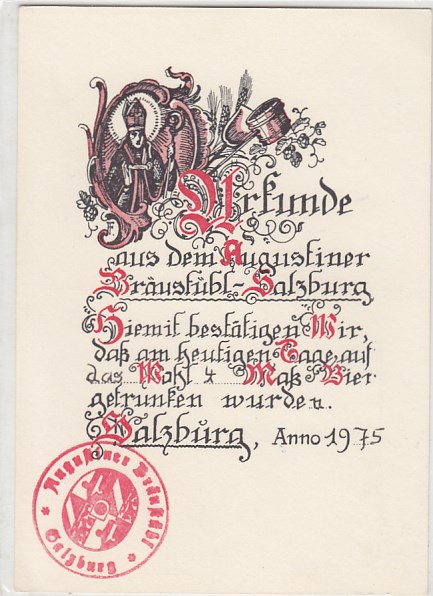 Urkunde
aus dem Augustiner
Bräustübl-Salzburg
Hiemit bestätigen Wir,
daß am heutigen Tage auf
das Wohl 4 Maß Bier
getrunken wurden.
Salzburg, Anno 1975
* Augustiner Bräustübl *
Salzburg